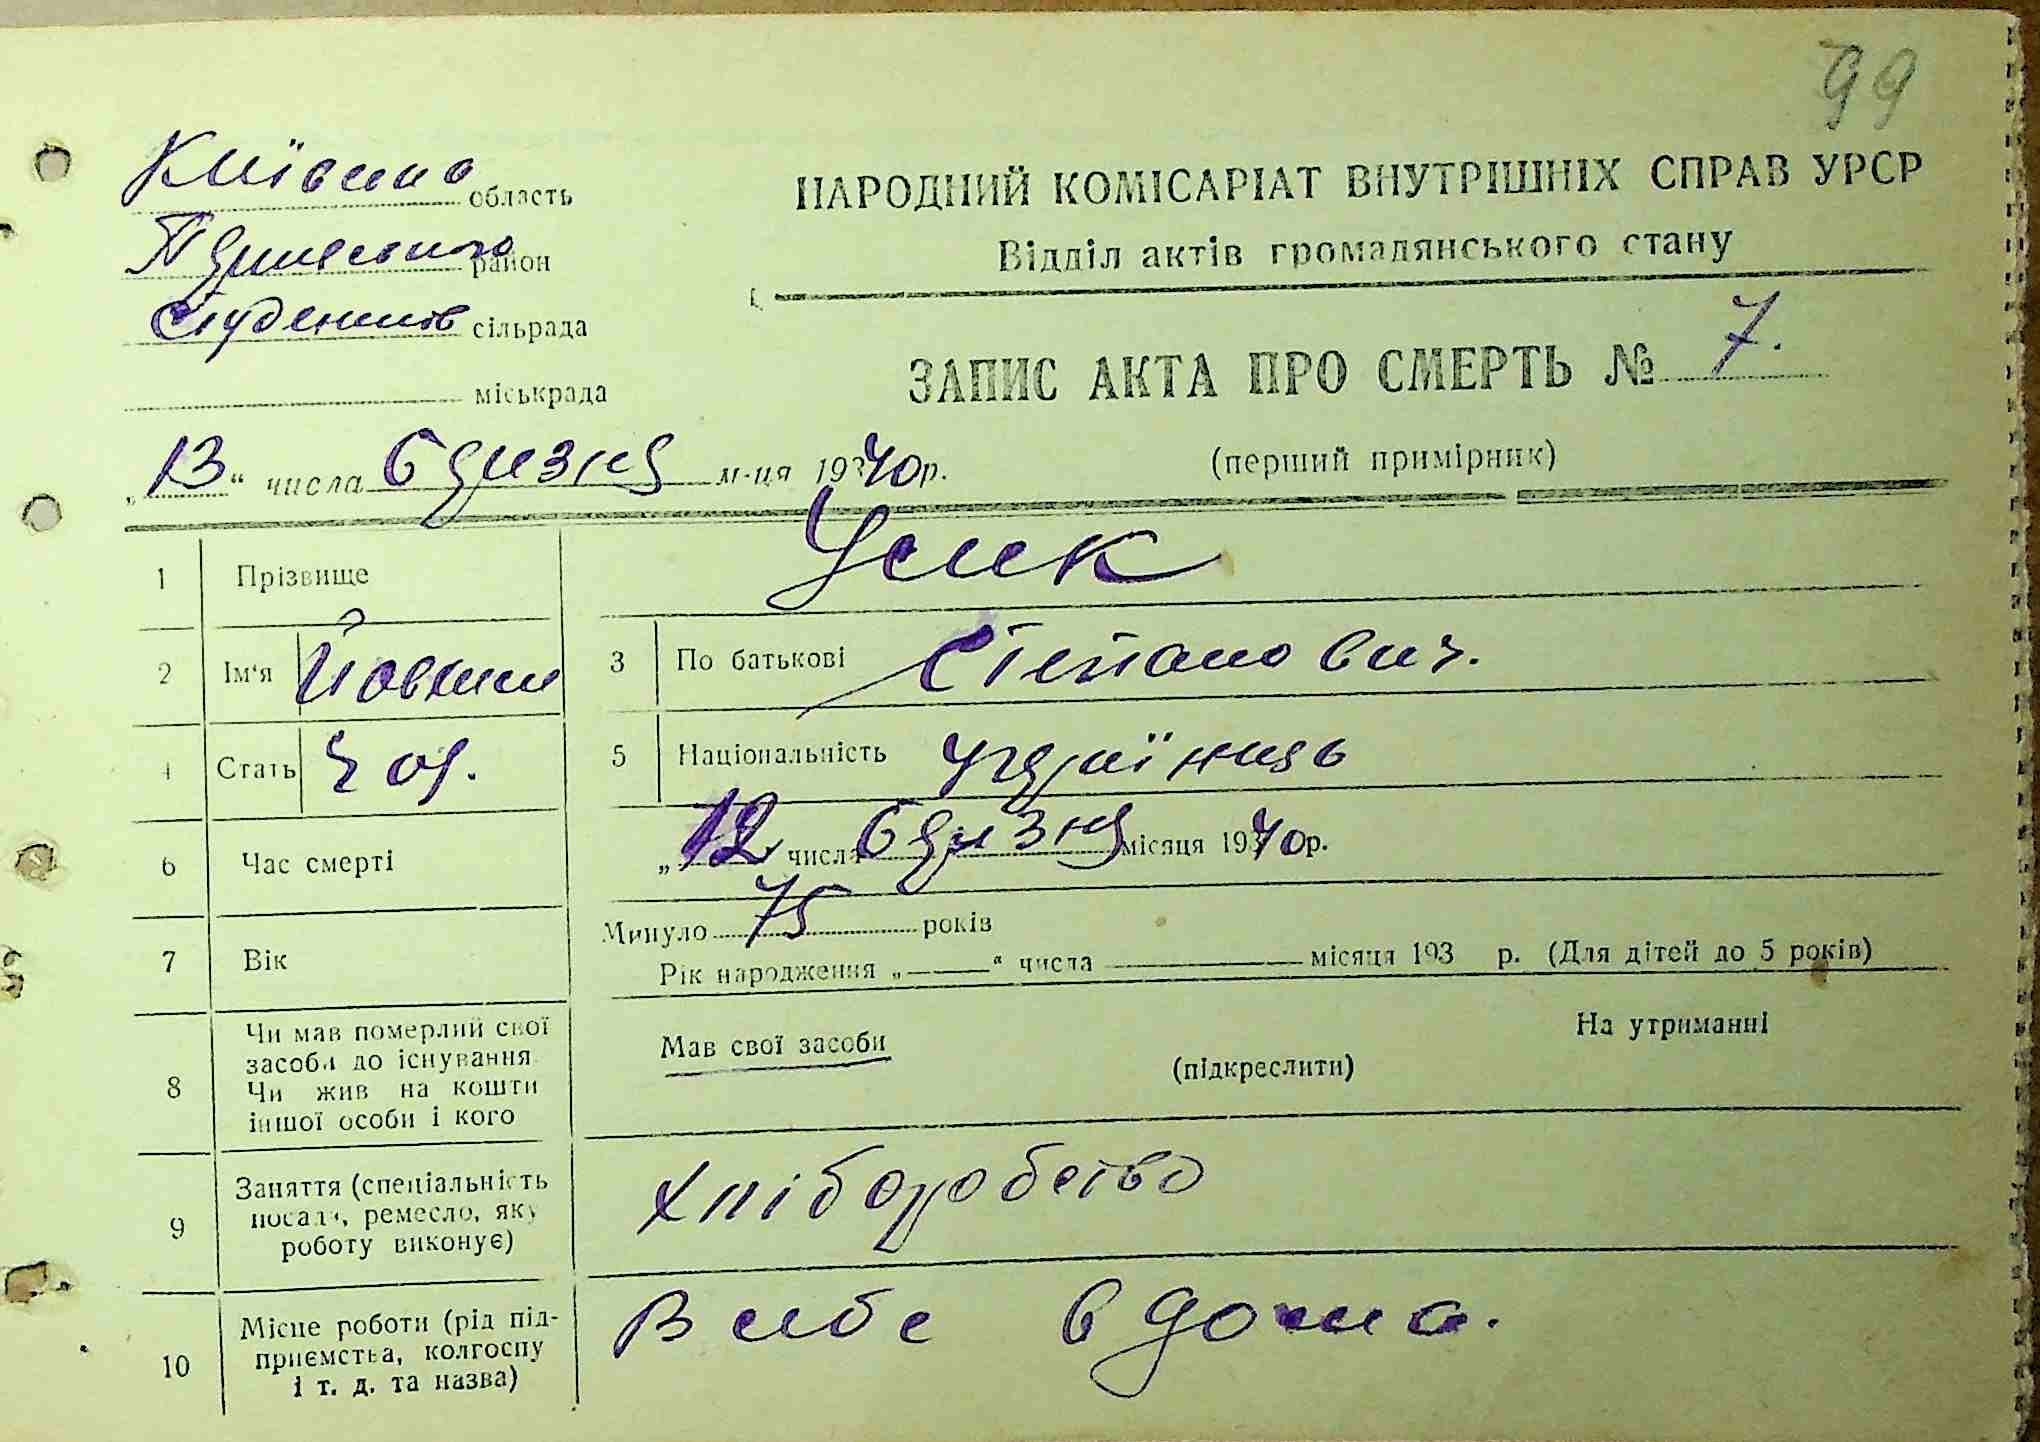 99
Київська область
район
Студеників сільрада
міськрада
НАРОДНИЙ КОМІСАРІАТ ВНУТРІШНІХ СПРАВ УРСР
Відділ актів громадянського стану
ЗАПИС АКТА ПРО СМЕРТЬ № 7.
(перший примірник)
„13“ числа березня м-ця 1940 р.
1 Прізвище Усик
2 Ім'я
3 По батькові Степанович.
4 Стать чол.
5 Національність українець
6 Час смерті „12 числа березня місяця 1940 р.
7 Вік
Минуло 75 років
Рік народження „ “ числа місяця 193 р. (Для дітей до 5 років)
8
Чи мав померлий свої
засоби до існування
Чи жив на кошти
іншої особи і кого
Мав свої засоби
(підкреслити)
На утриманні
9
Заняття (спеціальність
посада, ремесло, яку
роботу виконує)
Хліборобство
10
Місце роботи (рід під-
приємства, колгоспу
і т. д. та назва)
В себе вдома.